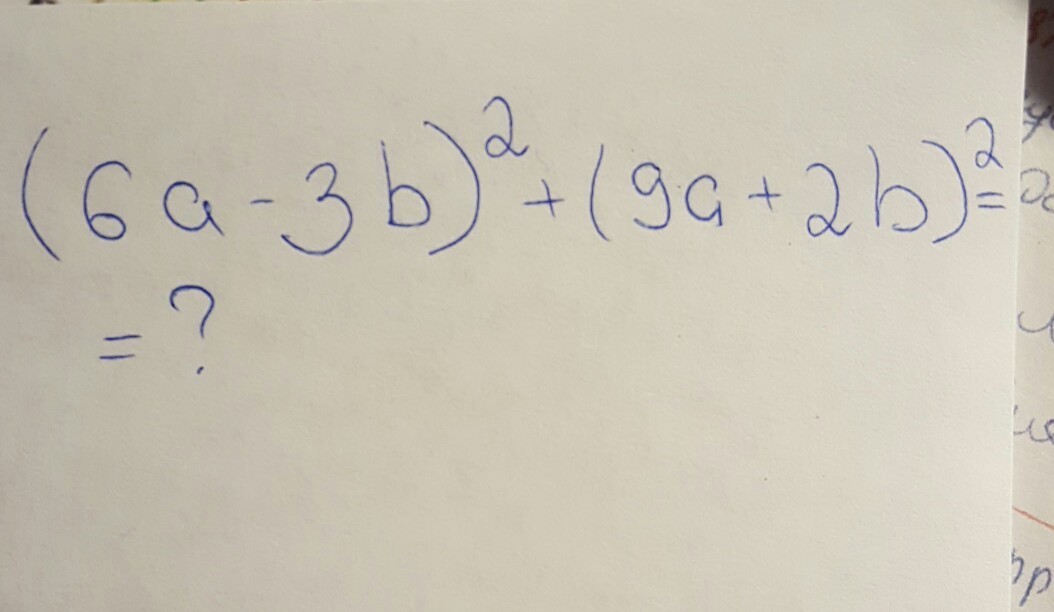 (6a-3b)²+(9a+2b)²=
=?